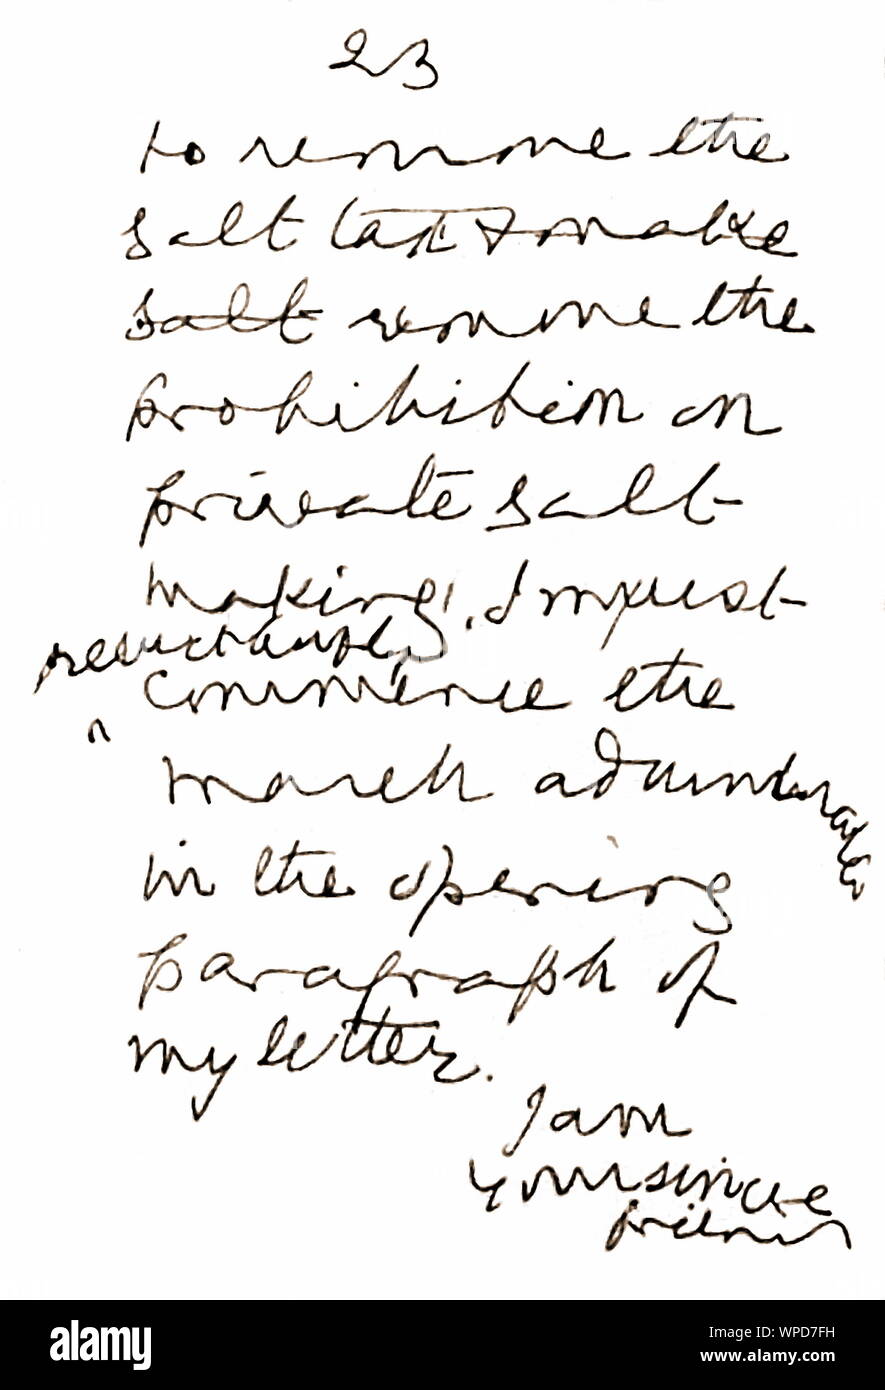 23
to remove the
salt tax & make
salt remove the
prohibition on
private salt
making, I must
reluctantly
commence the
^
march adumbrated
in the opening
paragraph of
my letter.
I am
Your sincere
friend
alamy
Image ID: WPD7FH
www.alamy.com